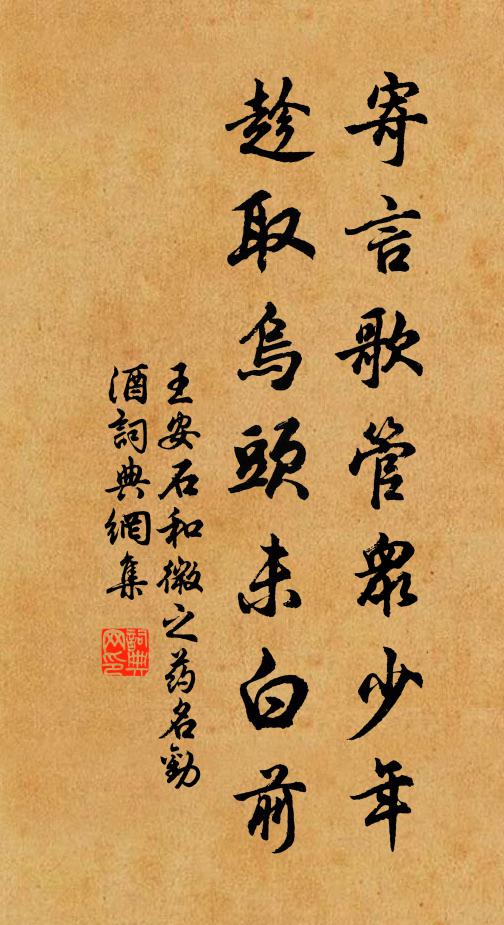 寄言歌管眾少年
趁取烏頭未白前
王安石和微之药名勸
酒詞典網集
詞典网印